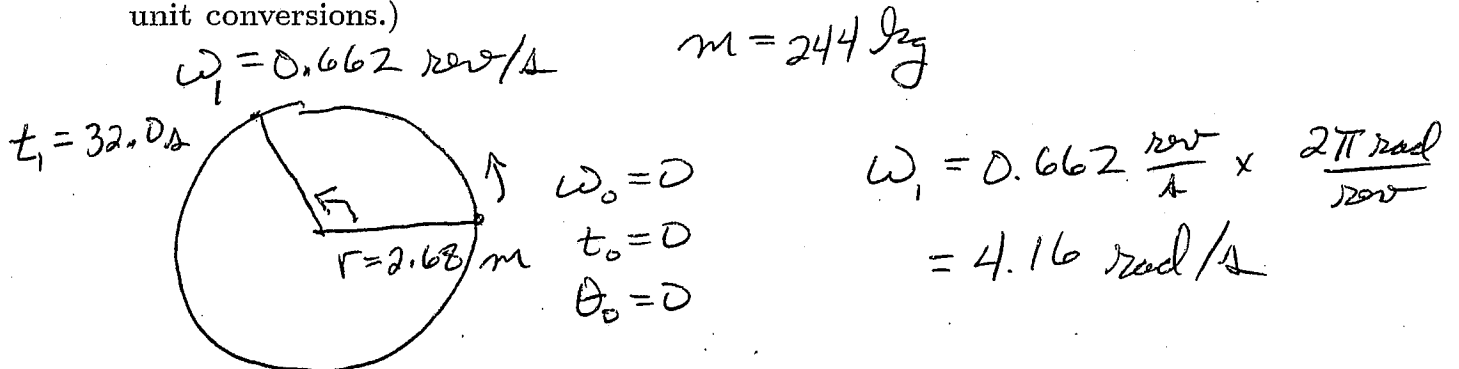 unit conversions.)
ω₁ = 0.662 rev/s
m = 244 kg
t₁ = 32.0s
r = 2.68 m
ω₀ = 0
t₀ = 0
θ₀ = 0
ω₁ = 0.662 rev/s × 2π rad/rev
= 4.16 rad/s